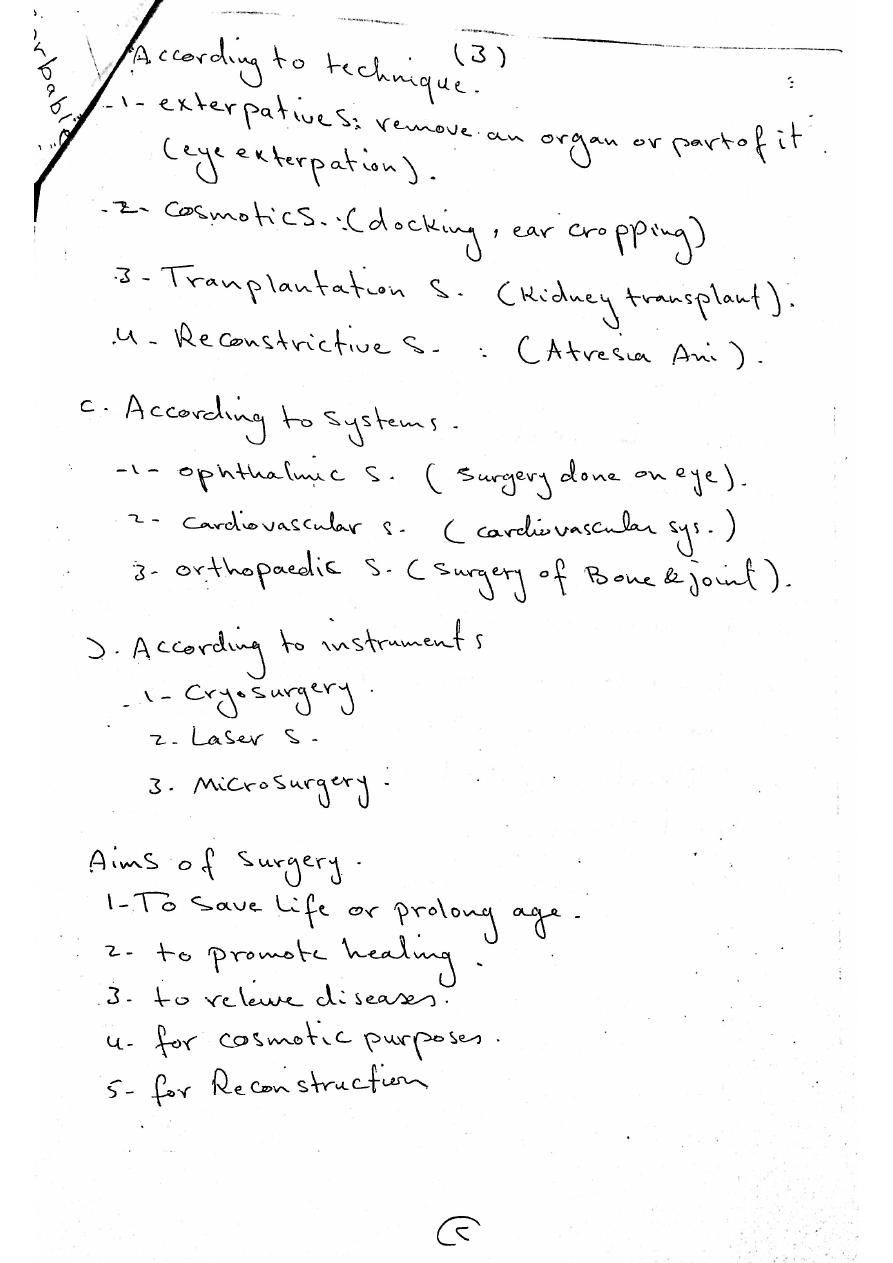 (3)
According to technique.
-1- exterpative S: remove an organ or part of it.
(eye exterpation).
-2- Cosmotic S. : (docking, ear cropping)
3- Tranplantation S. (Kidney transplant).
4- Reconstrictive S. : (Atresia Ani).
C. According to systems.
-1- ophthalmic S. (surgery done on eye).
2- Cardiovascular s. (cardiovascular sys.)
3- orthopaedic S. (surgery of Bone & joint).
D. According to instruments
-1- Cryosurgery.
2. Laser S.
3. Microsurgery.
Aims of surgery.
1-To save life or prolong age.
2- to promote healing.
3- to releive diseases.
4- for cosmotic purposes.
5- for Reconstruction